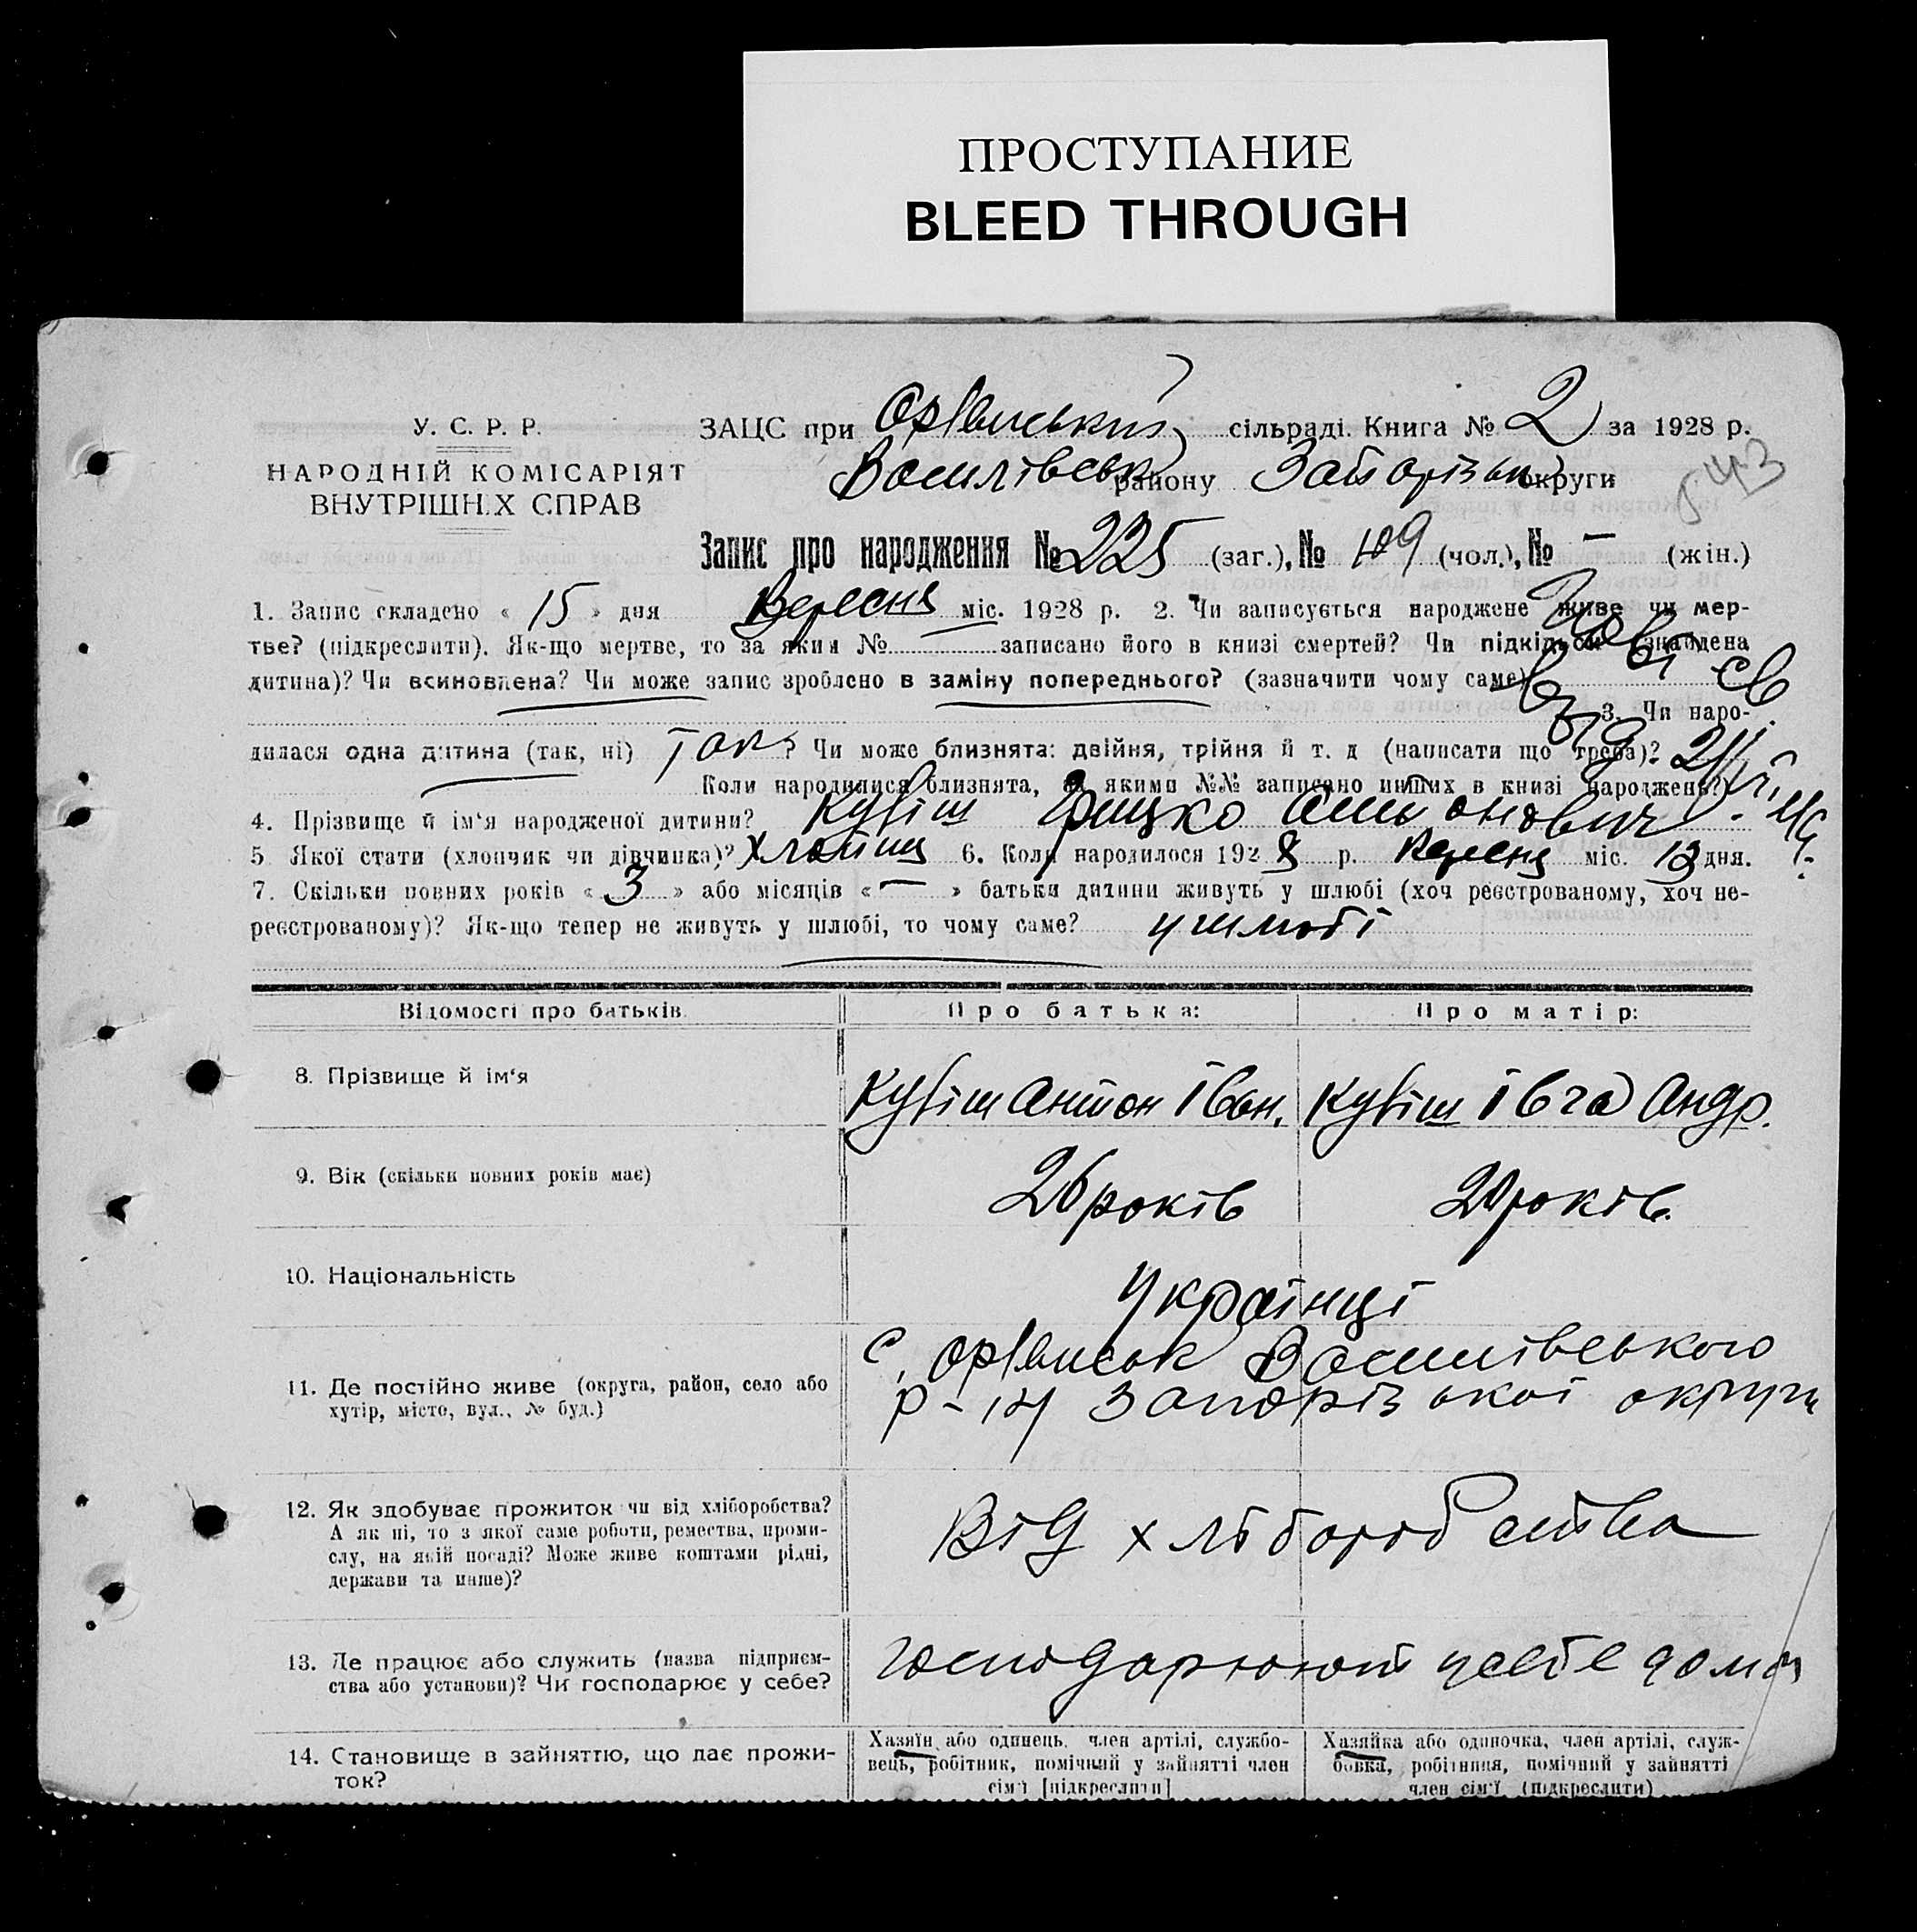 ПРОСТУПАНИЕ
BLEED THROUGH
У. С. Р. Р.
НАРОДНІЙ КОМІСАРІЯТ
ВНУТРІШН.Х СПРАВ
ЗАЦС при сільраді. Книга № 2 за 1928 р.
Василівськ району Запорізьк округи
543
Запис про народження № 225 (заг.), № 109 (чол.), № — (жін.)
1. Запис складено « 15 » дня Вересня міс. 1928 р. 2. Чи записується народжене живе чи мер-
тве? (підкреслити). Як-що мертве, то за яким № записано його в книзі смертей? Чи підкідьок (знайдена
дитина)? Чи всиновлена? Чи може запис зроблено в заміну попереднього? (зазначити чому саме)
3. Чи наро-
дилася одна дитина (так, ні) Так ? Чи може близнята: двійня, трійня й т. д (написати що треба)?
Коли народилися близнята, за якими №№ записано инших в книзі народжень?
4. Прізвище й ім'я народженої дитини? Кубіш Грицко Антонович
5 Якої стати (хлопчик чи дівчинка)? Хлопиць 6. Коли народилося 1928 р. Вересня міс. 13 дня.
7. Скільки повних років « 3 » або місяців « — » батьки дитини живуть у шлюбі (хоч реєстрованому, хоч не-
реєстрованому)? Як-що тепер не живуть у шлюбі, то чому саме? у шлюбі
Відомості про батьків. Про батька: Про матір:
8. Прізвище й ім'я Кубіш Антон Іван. Кубіш Івга Андр.
9. Вік (скільки повних років має) 26 років 20 років.
10. Національність Українці
11. Де постійно живе (округа, район, село або
хутір, місто, вул., № буд.)
с. Василівського
р-ну Запорізької округи
12. Як здобуває прожиток чи від хліборобства?
А як ні, то з якої саме роботи, ремества, проми-
слу, на якій посаді? Може живе коштами рідні,
держави та инше)?
Від хліборобства
13. Де працює або служить (назва підприєм-
ства або установи)? Чи господарює у себе?
господарюють у себе дома
14. Становище в зайняттю, що дає прожи-
ток?
Хазяїн або одинець, член артілі, службо-
вець, робітник, помічний у зайнятті член
сім'ї [підкреслити]
Хазяйка або одиночка, член артілі, служ-
бовка, робітниця, помічний у зайнятті
член сім'ї (підкреслити)